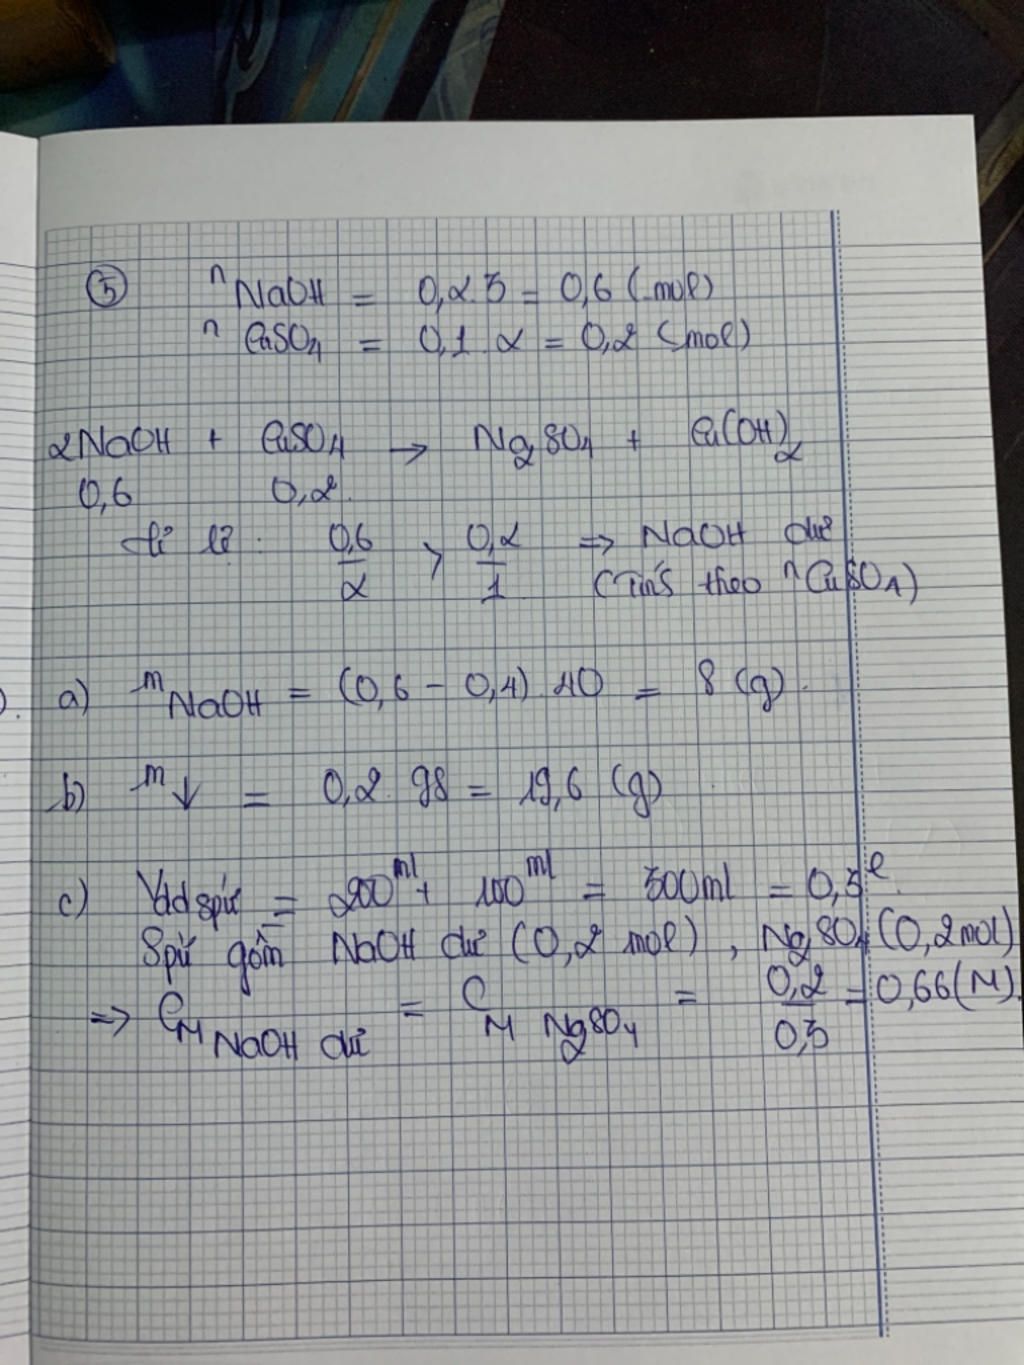 ⑤ nNaOH = 0,2.3 = 0,6 (mol)
nCuSO4 = 0,1.2 = 0,2 (mol)
2NaOH + CuSO4 → Na2SO4 + Cu(OH)2
0,6 0,2
tỉ lệ: 0,6/2 > 0,2/1 => NaOH dư
(Tính theo nCuSO4)
a) mNaOH = (0,6 - 0,4).40 = 8 (g).
b) m↓ = 0,2.98 = 19,6 (g)
c) Vdd spứ = 200ml + 100ml = 300ml = 0,3l
Spứ gồm NaOH dư (0,2 mol), Na2SO4 (0,2mol)
=> CM NaOH dư = CM Na2SO4 = 0,2/0,3 = 0,66(M).